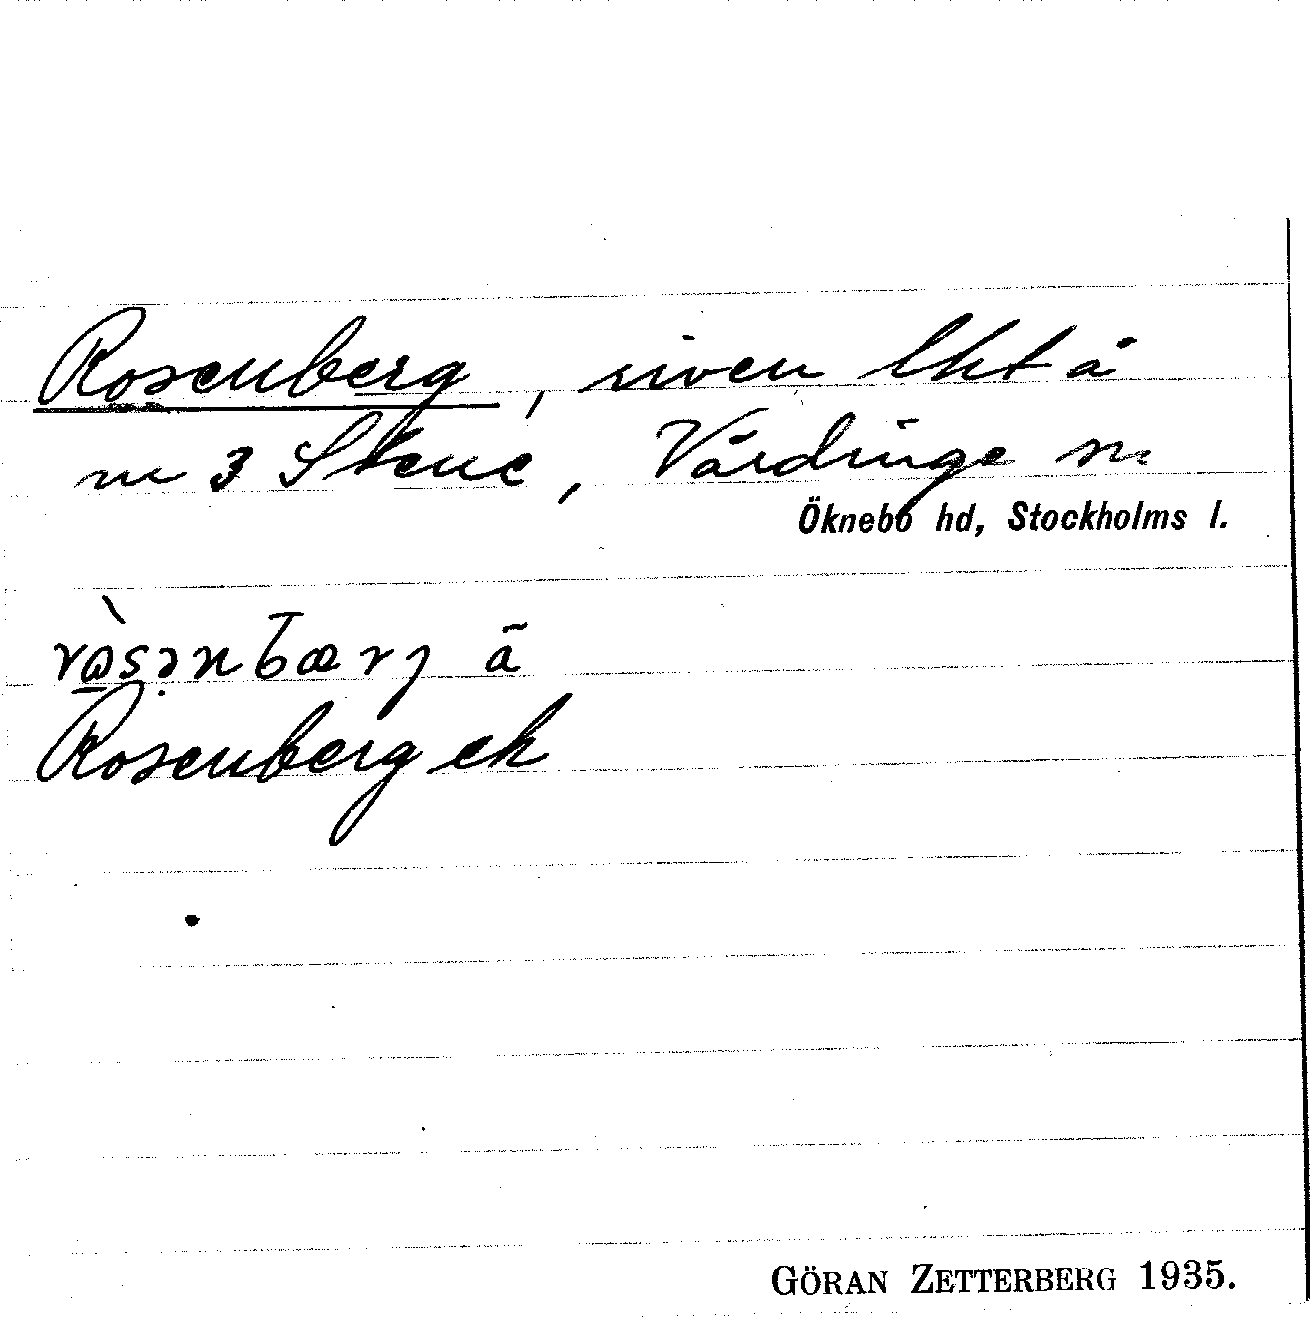 Rosenberg, riven lht å
nr 3 Stene, Vårdinge sn
Öknebo hd, Stockholms l.
Rosenberg ek
GÖRAN ZETTERBERG 1935.